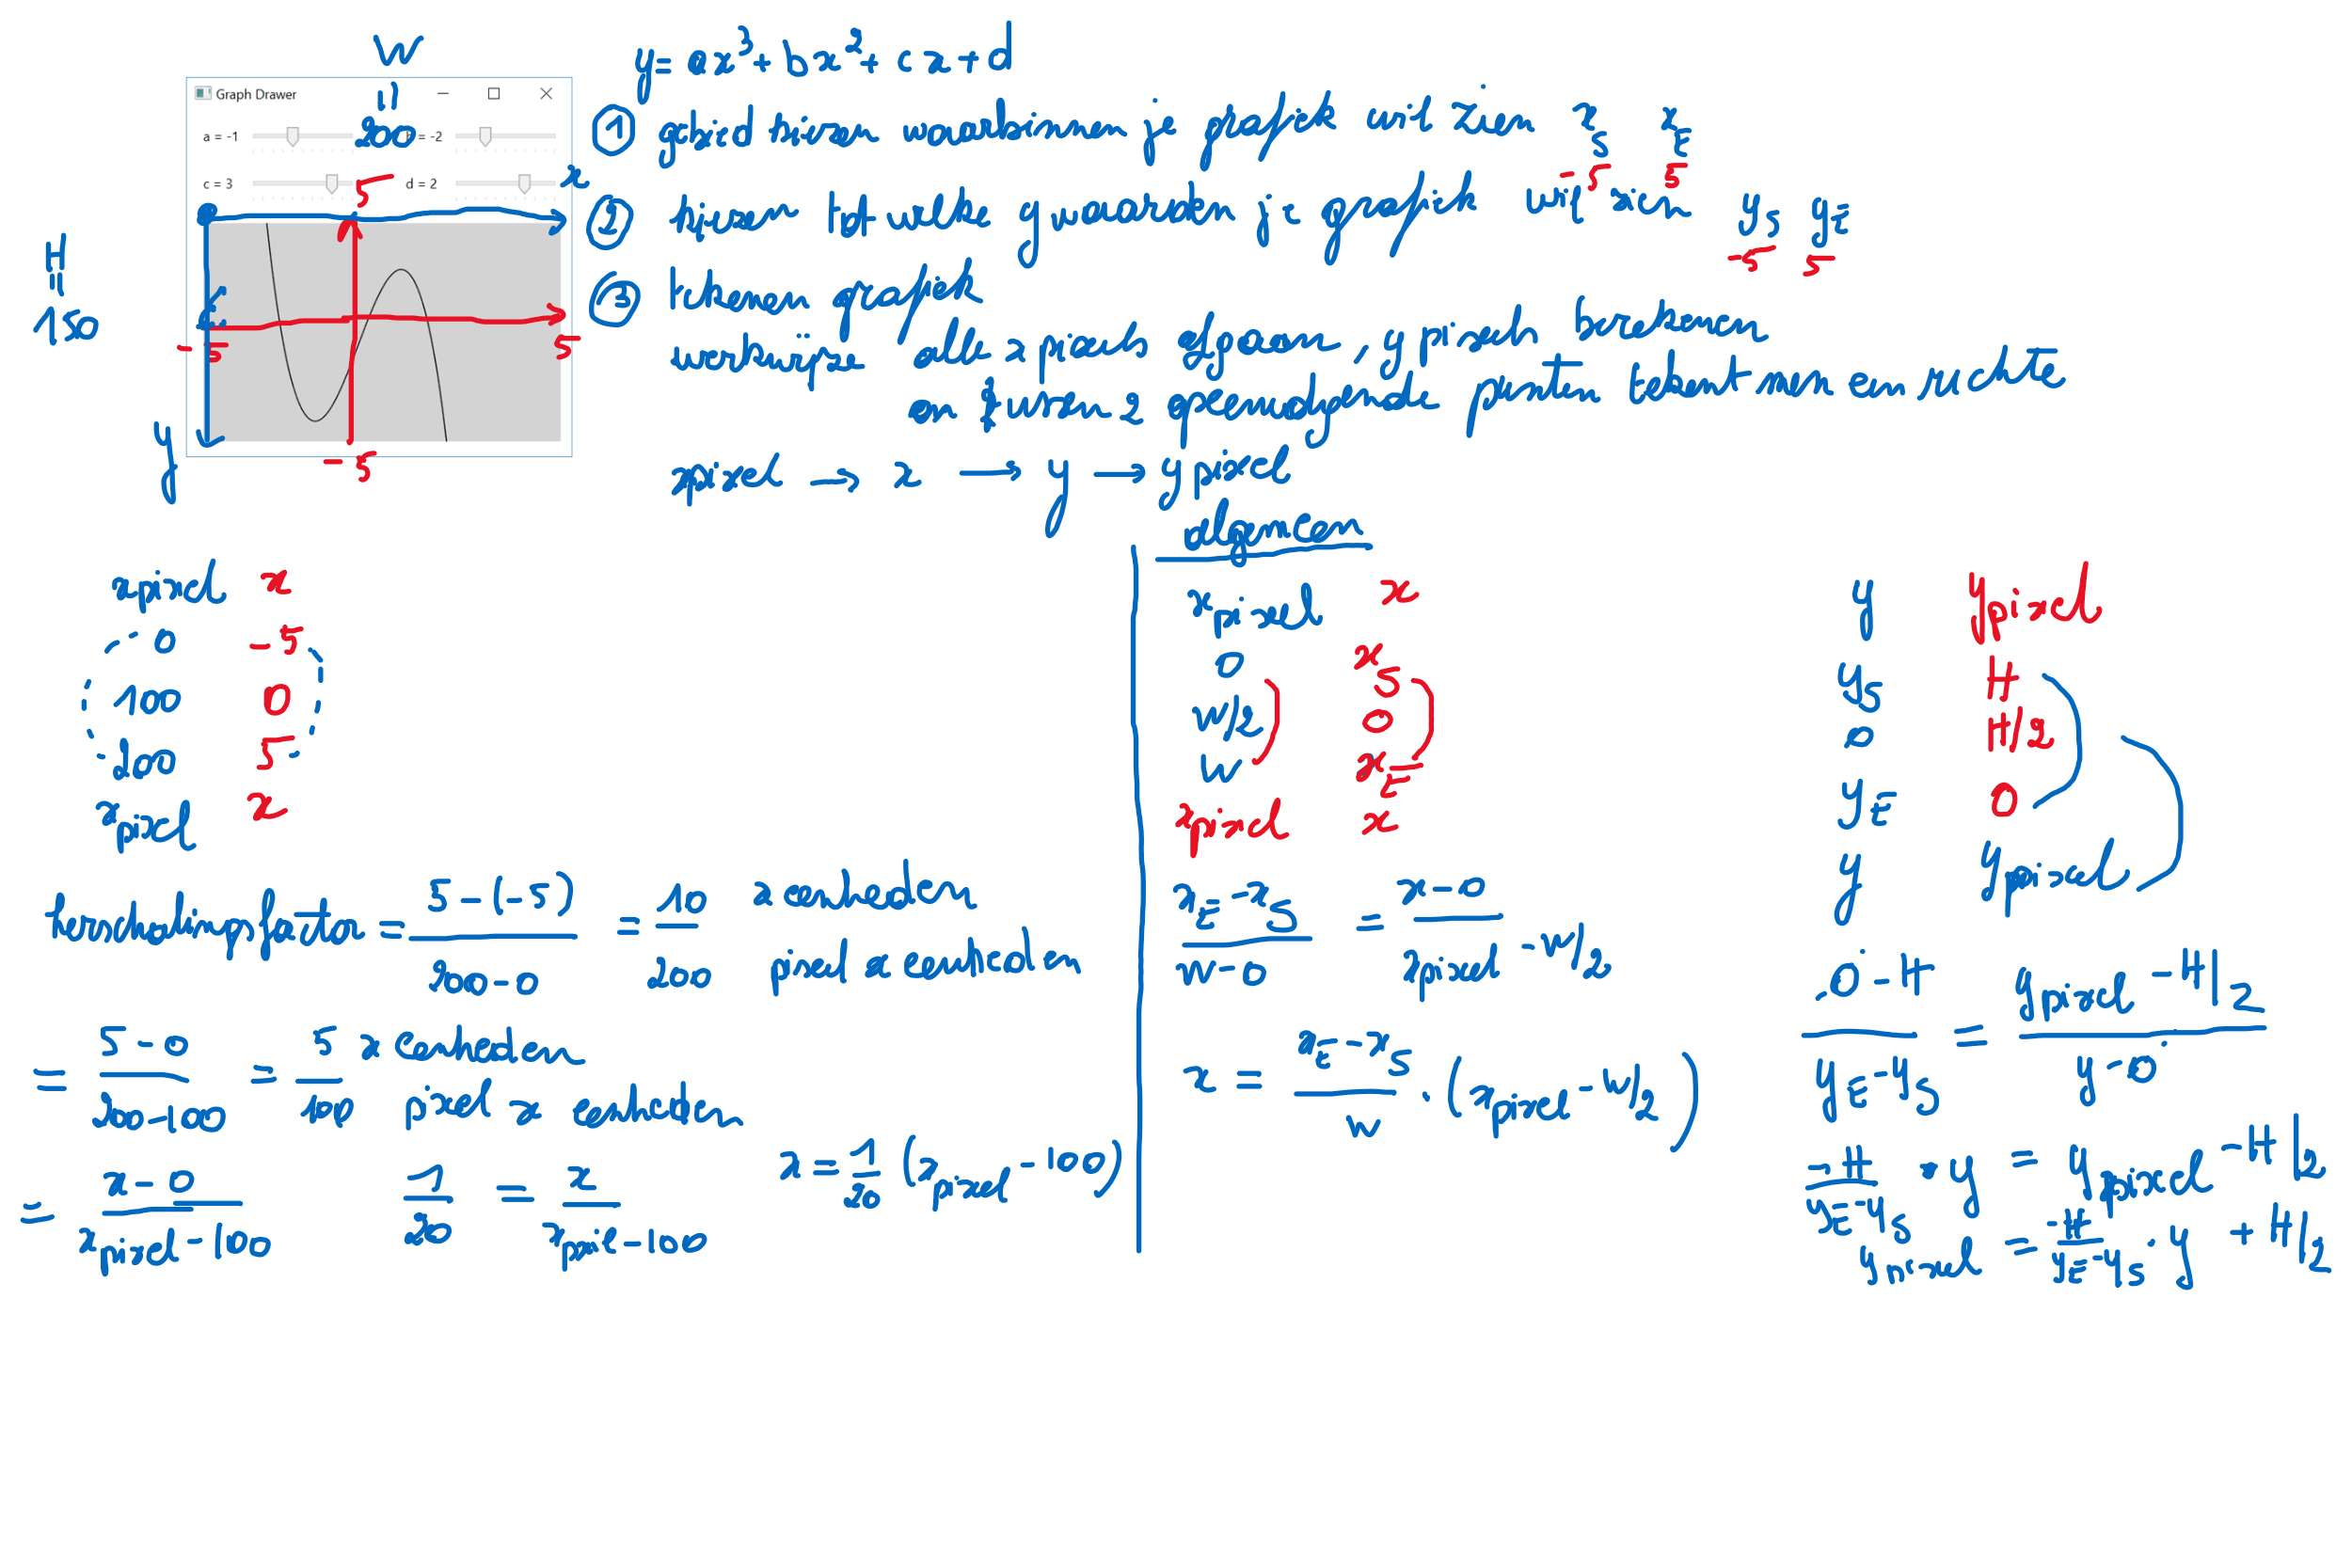 W
=
200
Graph Drawer
a = -1
b = -2
c = 3
d = 2
x
5
H
=
150
-5
5
y
-5
y = ax³ + bx² + cx + d
① gebied kiezen waarbinnen je grafiek wil zien x_S x_E
-5 5
② kiezen tot welke y waarden je grafiek wil zien y_S y_E
-5 5
③ tekenen grafiek
werkwijze alle x pixels afgaan, y pixels berekenen
en tussen 2 opeenvolgende punten tekent men een rechte
xpixel → x → y → ypixel
xpixel x
0 -5
100 0
200 5
x_pixel x
herschalingsfactor = (5-(-5))/(200-0) = 10/200 x eenheden / pixel x eenheden
= (5-0)/(200-100) = 5/100 x eenheden / pixel x eenheden
= (x-0)/(x_pixel-100) 1/20 = x/(x_pixel-100) x = 1/20 (x_pixel-100)
algemeen
x_pixel x
0 x_S
W/2 0
W x_E
x_pixel x
(x_E-x_S)/(W-0) = (x-0)/(x_pixel-W/2)
x = (x_E-x_S)/W · (x_pixel-W/2)
y y_pixel
y_S H
0 H/2
y_E 0
y y_pixel
(0-H)/(y_E-y_S) = (y_pixel-H/2)/(y-0)
-H/(y_E-y_S) · y = y_pixel-H/2
y_pixel = -H/(y_E-y_S) · y + H/2